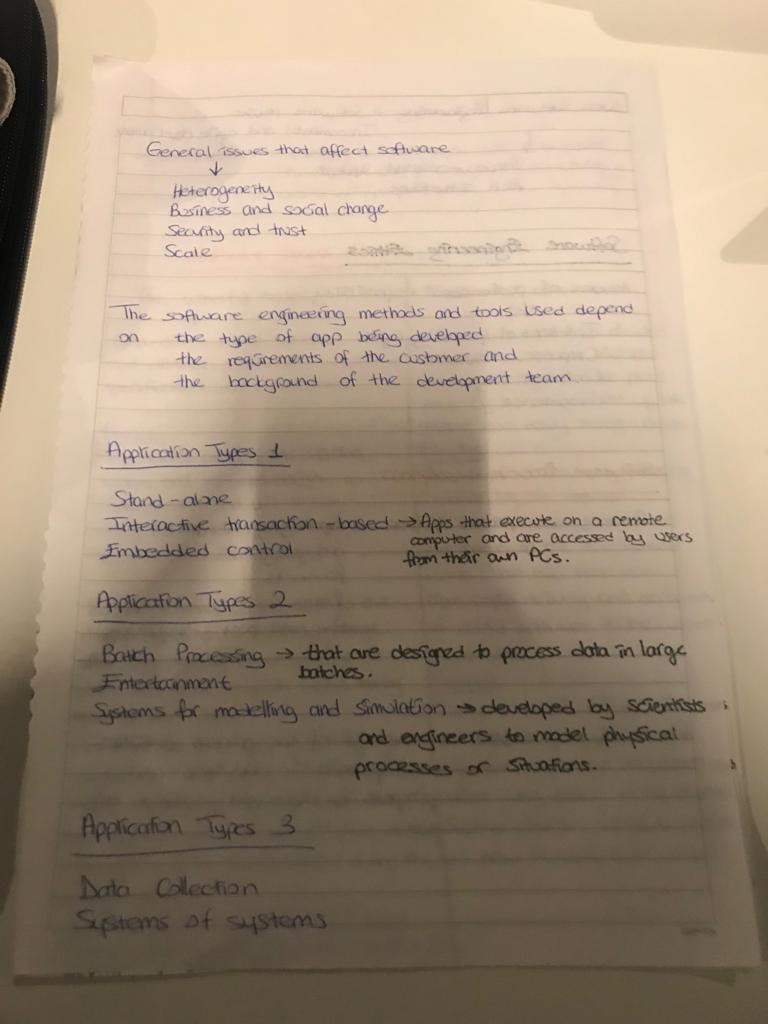 General issues that affect software
↓
Heterogeneity
Business and social change
Security and trust
Scale
Software Engineering Ethics
The software engineering methods and tools used depend
on the type of app being developed
the requirements of the customer and
the background of the development team
Application Types 1
Stand-alone
Interactive transaction-based → Apps that execute on a remote
computer and are accessed by users
from their own PCs.
Embedded control
Application Types 2
Batch Processing → that are designed to process data in large
batches.
Entertainment
Systems for modelling and simulation → developed by scientists
and engineers to model physical
processes or situations.
Application Types 3
Data Collection
Systems of systems